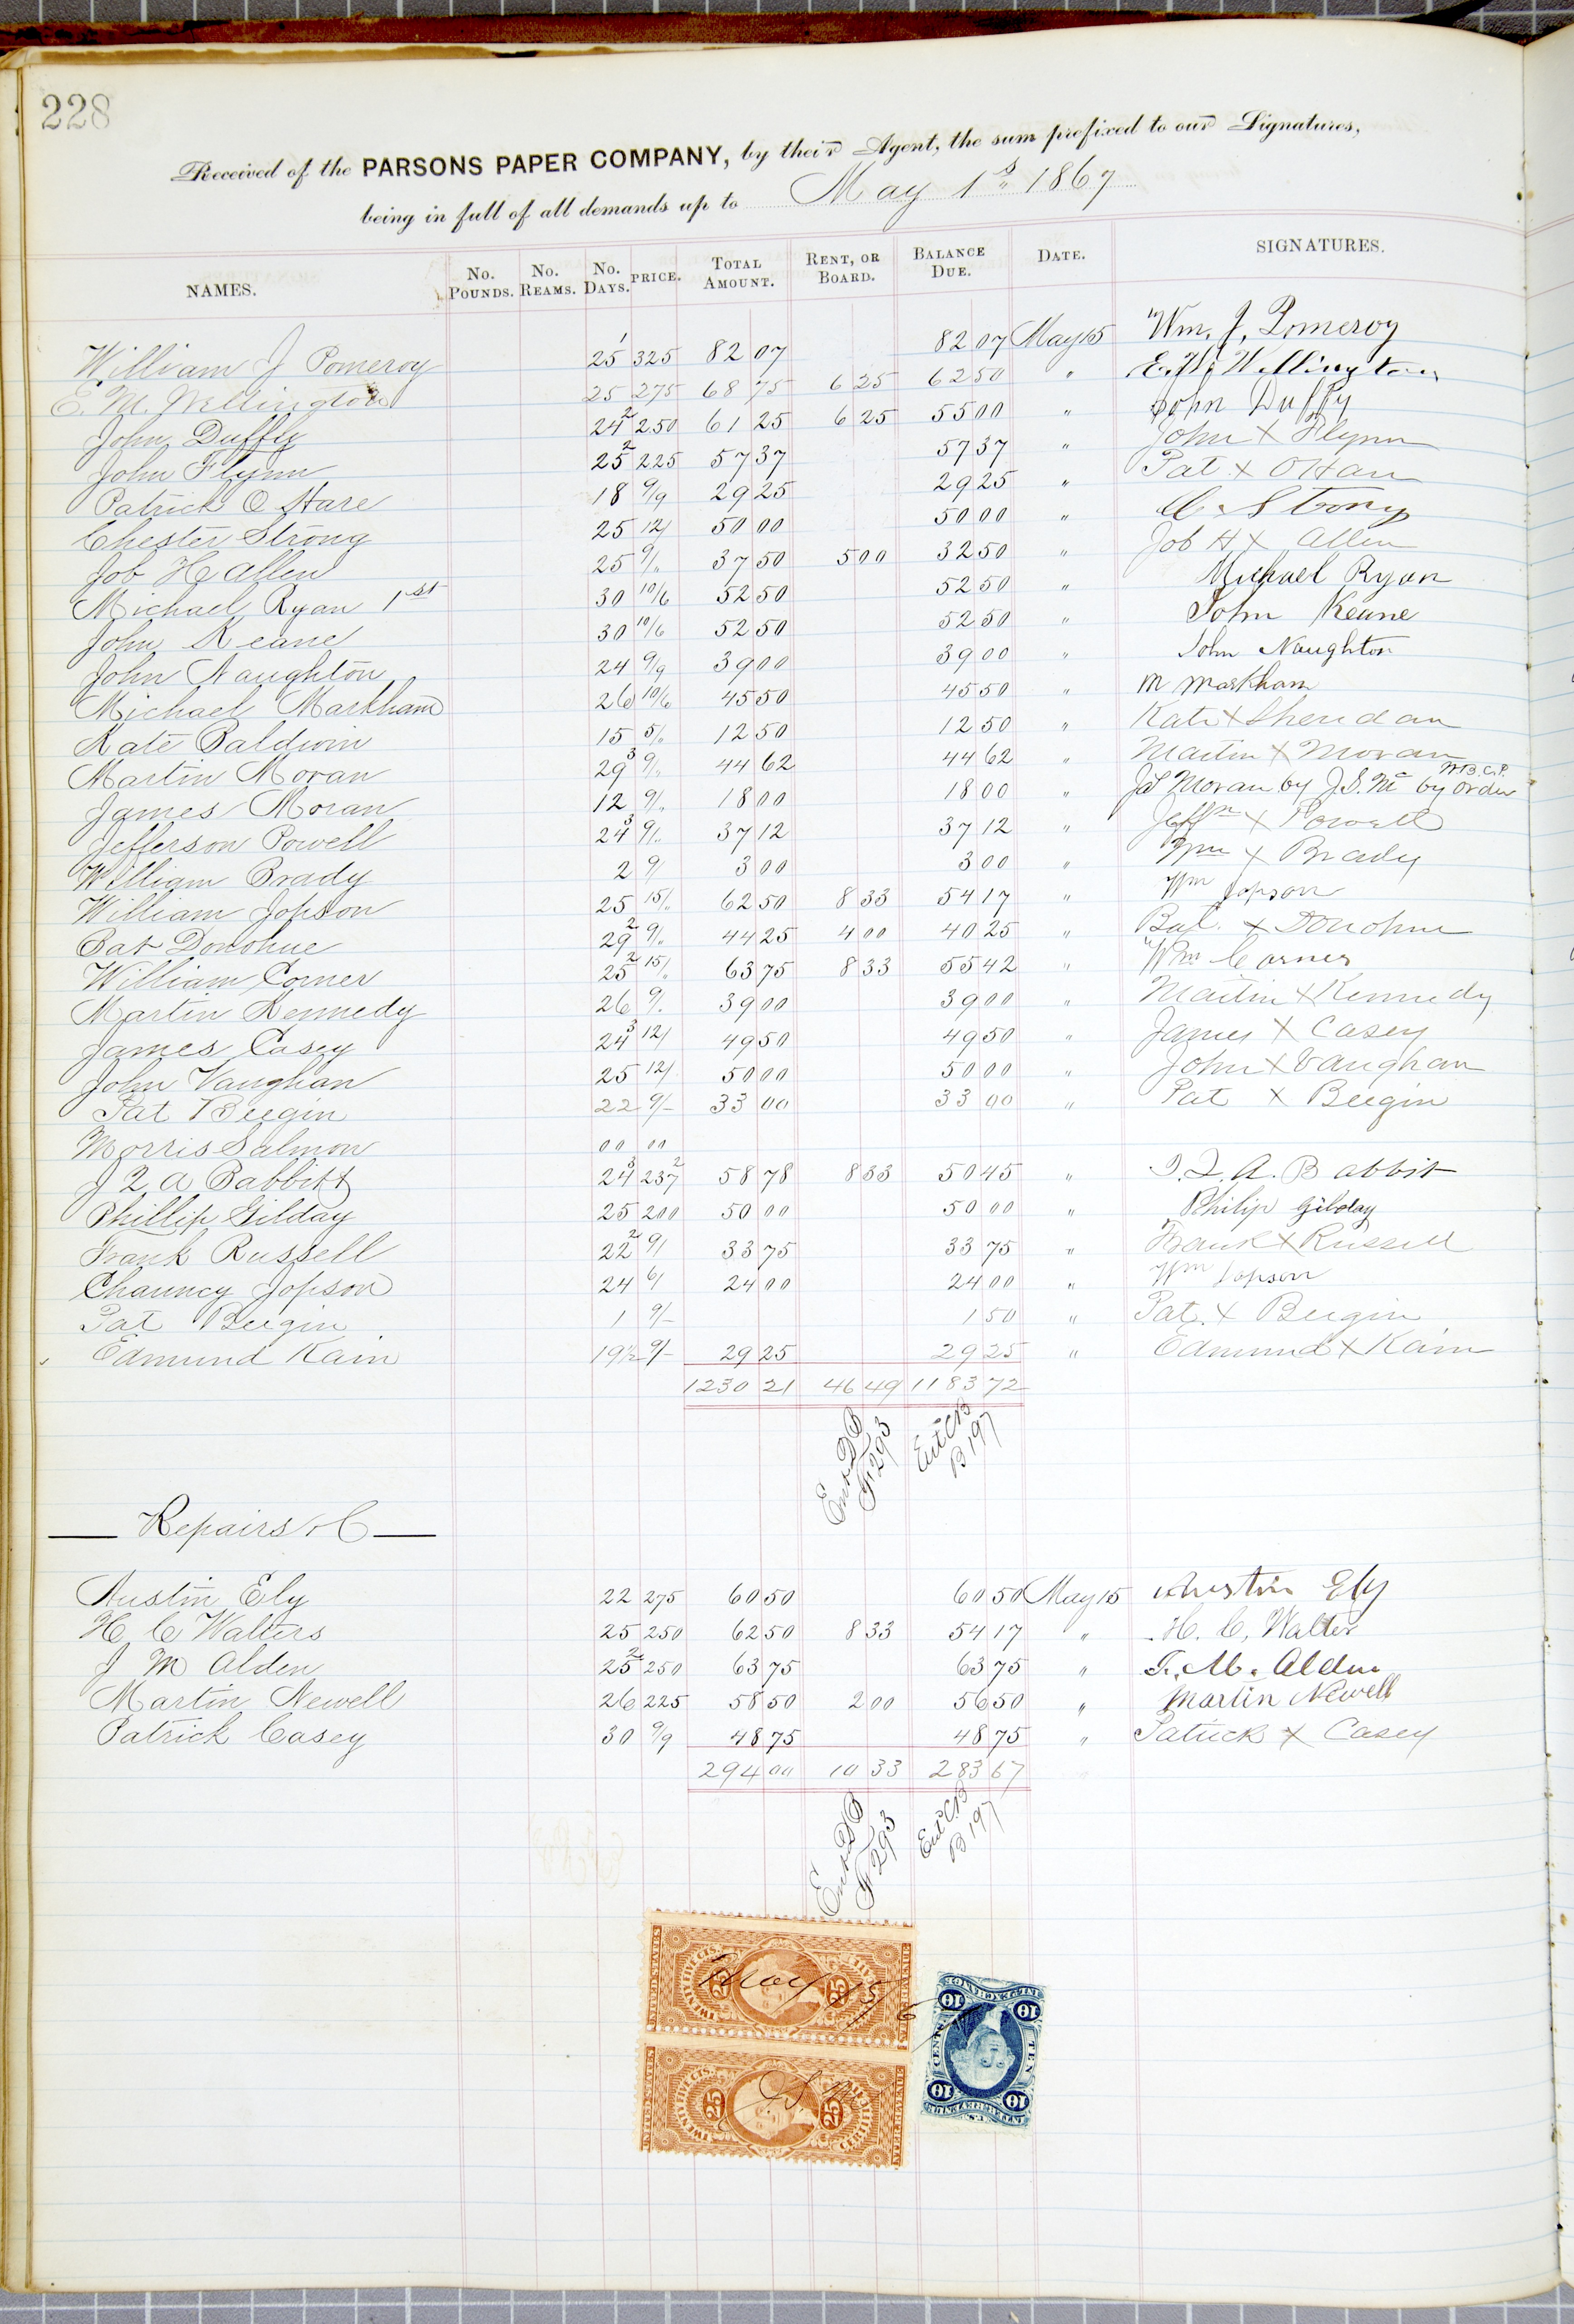 228
Received of the PARSONS PAPER COMPANY, by their Agent, the sum prefixed to our Signatures,
being in full of all demands up to May 1st 1867
NAMES. No. POUNDS. No. REAMS. No. DAYS. PRICE. TOTAL AMOUNT. RENT, OR BOARD. BALANCE DUE. DATE. SIGNATURES.
William J Pomeroy 25 1 325 82 07 82 07 May 15 Wm. J. Pomeroy
E. M. Wellington 25 275 68 75 6 25 62 50 " E. M. Wellington
John Duffy 24 2 250 61 25 6 25 55 00 " John Duffy
John Flynn 25 2 225 57 37 57 37 " John X Flynn
Patrick O Hare 18 9/9 29 25 29 25 " Pat X O Hare
Chester Strong 25 12/ 50 00 50 00 " C. Strong
Job H Allen 25 9/" 37 50 5 00 32 50 " Job H X Allen
Michael Ryan 1st 30 10/6 52 50 52 50 " Michael Ryan
John Keane 30 10/6 52 50 52 50 " John Keane
John Naughton 24 9/9 39 00 39 00 " John Naughton
Michael Markham 26 10/6 45 50 45 50 " M Markham
Kate Baldwin 15 5/" 12 50 12 50 " Kate X Sheridan
Martin Moran 29 3 9/" 44 62 44 62 " Martin X Moran
James Moran 12 9/" 18 00 18 00 " Js Moran by J.S. Mc by order W.B.C.P.
Jefferson Powell 24 3 9/" 37 12 37 12 " Jeffn X Powell
William Brady 2 9/ 3 00 3 00 " Wm X Brady
William Jopson 25 15/" 62 50 8 33 54 17 " Wm Jopson
Pat Donohue 29 2 9/" 44 25 4 00 40 25 " Pat. X Donohue
William Corner 25 2 15/" 63 75 8 33 55 42 " Wm Corner
Martin Kennedy 26 9/" 39 00 39 00 " Martin X Kennedy
James Casey 24 3 12/ 49 50 49 50 " James X Casey
John Vaughan 25 12/ 50 00 50 00 " John X Vaughan
Pat Bergin 22 9/- 33 00 33 00 " Pat X Bergin
Morris Salmon 00 00
J Q A Babbitt 24 3 237 2 58 78 8 33 50 45 " J. Q. A. Babbit
Phillip Gilday 25 200 50 00 50 00 " Philip Gilday
Frank Russell 22 2 9/ 33 75 33 75 " Frank X Russell
Chauncy Jopson 24 6/ 24 00 24 00 " Wm Jopson
Pat Bergin 1 9/- 1 50 " Pat. X Bergin
Edmund Kain 19½ 9/- 29 25 29 25 " Edmund X Kain
1230 21 46 49 1183 72
Ent DB F 293 Ent CB B 197
Repairs &C
Austin Ely 22 275 60 50 60 50 May 15 Austin Ely
H C Walters 25 250 62 50 8 33 54 17 " H. C. Walter
J M Alden 25 2 250 63 75 63 75 " J. M. Alden
Martin Newell 26 225 58 50 2 00 56 50 " Martin Newell
Patrick Casey 30 9/9 48 75 48 75 " Patrick X Casey
294 00 10 33 283 67
Ent DB F 293 Ent CB B 197
UNITED STATES TWENTY FIVE CTS. INTER. REVENUE 25 25
May 15/6
UNITED STATES TWENTY FIVE CTS. INTER. REVENUE 25 25
J.S. Mc
U.S. INTER. REV. TEN CENTS 10 10 10 10